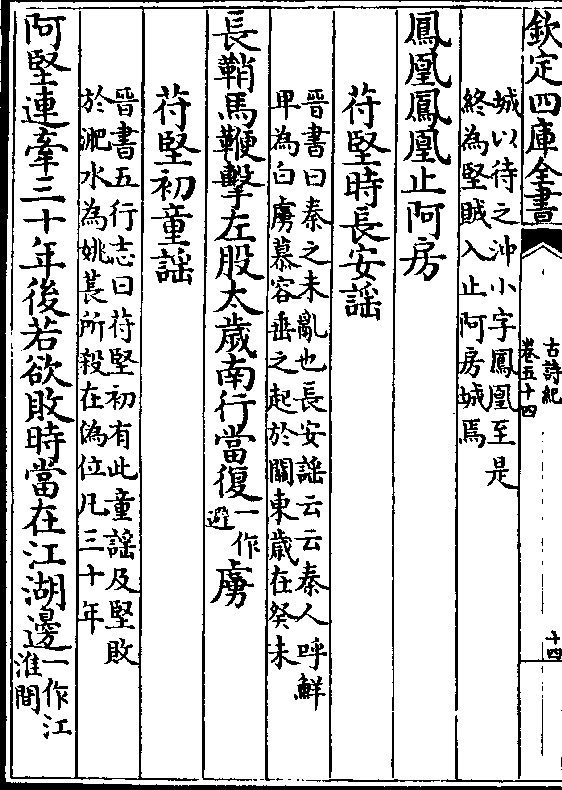 欽定四庫全書
古詩紀
卷五十四
十四
城以待之沖小字鳳凰至是
終為堅賊入止阿房城焉
鳳凰鳳凰止阿房
苻堅時長安謠
晉書曰秦之未亂也長安謠云云秦人呼鮮
卑為白虜慕容垂之起於關東歲在癸未
長鞘馬鞭擊左股太歲南行當復一作避虜
苻堅初童謠
晉書五行志曰苻堅初有此童謠及堅敗
於淝水為姚萇所殺在偽位凡三十年
阿堅連牽三十年後若欲敗時當在江湖邊一作江淮間